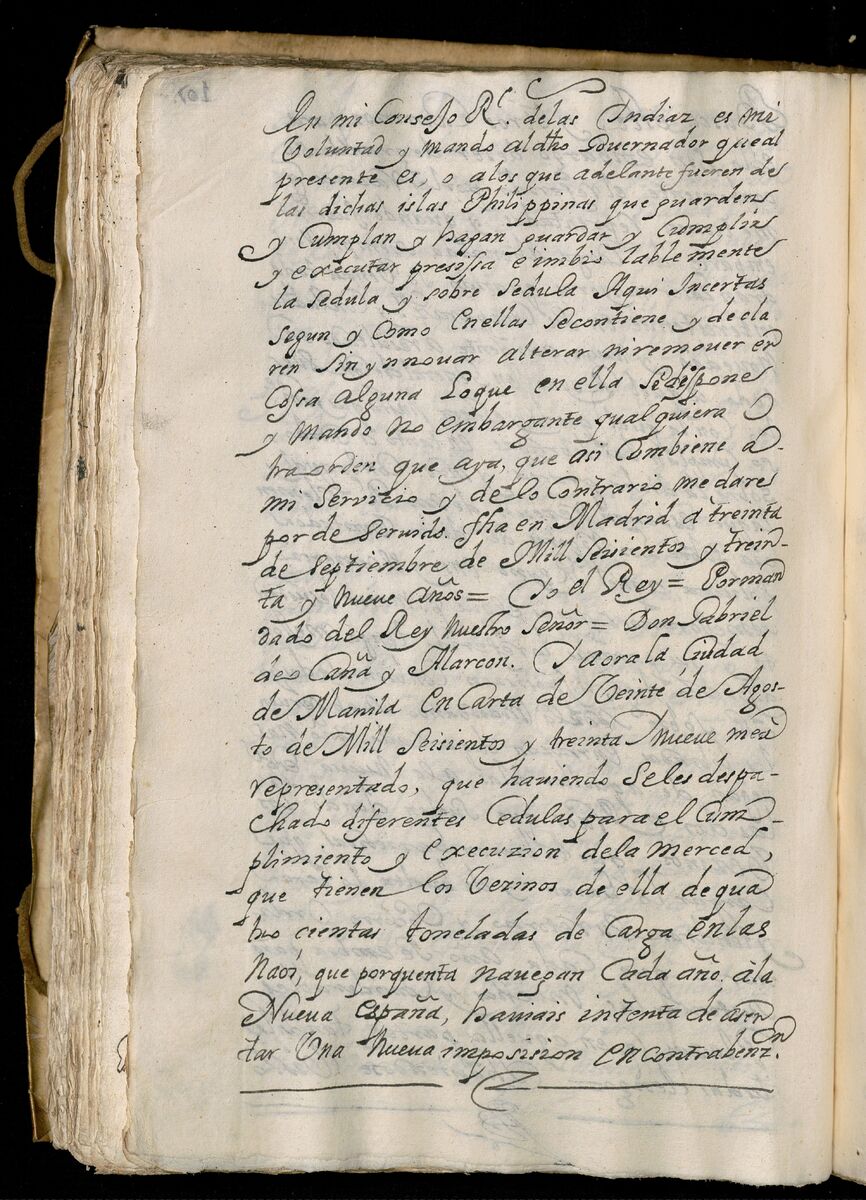 En mi Consejo Rl. delas Yndiaz es mi
Voluntad y mando aldho Governador queal
presente es, o alos que adelante fueren de
las dichas islas Philippinas que guarden
y Cumplan y hagan guardar y Cumplir
y executar presissa e imbio lablemente
la sedula y sobre sedula Aqui Incertas
segun y Como Enellas secontiene y decla
ren sin ynnouar alterar niremouer en
Cossa alguna Loque en ella sedispone
y Mando no embargante qualquiera O
tra orden que aya, que asi Combiene a
mi Servicio y de lo Contrario medare
por de servido. fha en Madrid a treinta
de septiembre de Mill seisientos y trein-
ta y nueve años = Yo el Rey = Porman
dado del Rey Nuestro Señor = Don Gabriel
de Caña y Alarcon. Y aora la Ciudad
de Manila En Carta de Veinte de Agos-
to de Mill seisientos y treinta Nueve mea
representado, que haviendo seles despa-
chado diferentes Cedulas para el Cum-
plimiento y Execuzion dela merced,
que tienen los Vezinos de ella de qua
tro cientas toneladas de Carga en las
Naos, que porquenta navegan Cada año. a la
Nueva españa, haviais intentadeasen
tar Una Nueva imposision en contrabenzon.
107